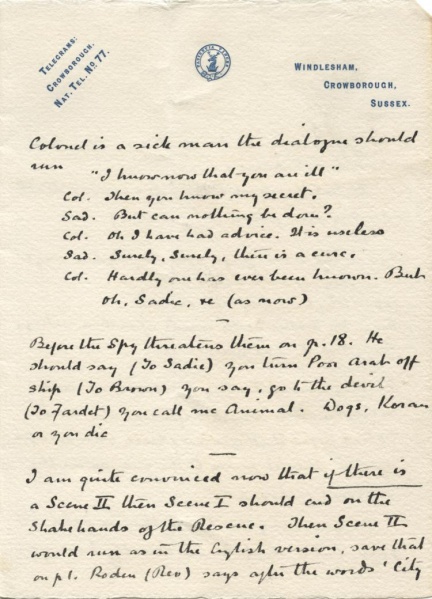 TELEGRAMS:
CROWBOROUGH.
NAT. TEL. No 77.
WINDLESHAM,
CROWBOROUGH,
SUSSEX.
Colonel is a sick man the dialogue should
run "I know now that you are ill"
Col. Then you know my secret.
Sad. But can nothing be done?
Col. Oh I have had advice. It is useless
Sad. Surely, Surely, there is a cure.
Col. Hardly one has ever been known. But
Oh, Sadie, &c (as now)
Before the Spy threatens them on p. 18. He
should say (To Sadie) You turn Poor Arab off
ship (To Brown) You say, go to the devil
(To Fardet) You call me Animal. Dogs, Koran
or you die
I am quite convinced now that if there is
a Scene II then Scene I should end on the
Shakehands of the Rescue. Then Scene II
would run as in the English version, save that
on p1. Roden (Rev) says after the words 'City